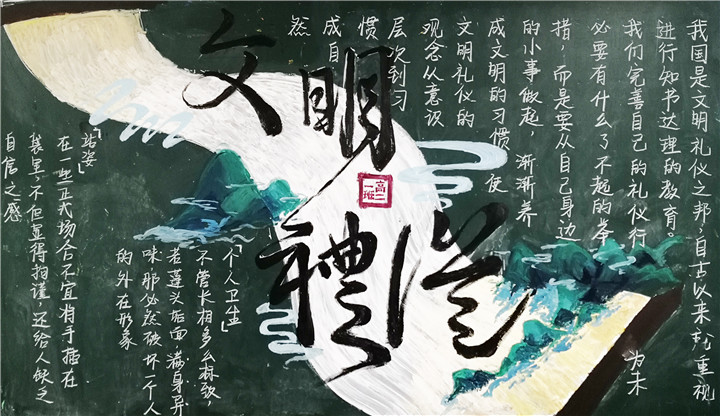 文明
禮儀
高二
一班
我国是文明礼仪之邦，自古以来就重视
进行知书达理的教育。
我们完善自己的礼仪行为未
必要有什么了不起的举
措，而是要从自己身边
的小事做起 渐渐养
成文明的习惯 使
文明礼仪的
观念从意识
层次到习
惯
成自
然
「个人卫生」
不管长相多么标致，
若蓬头垢面 满身异
味那必然破坏一个人
的外在形象
「站姿」
在一些正式场合不宜将手插在
袋里，不但显得拘谨，还给人缺乏
自信之感